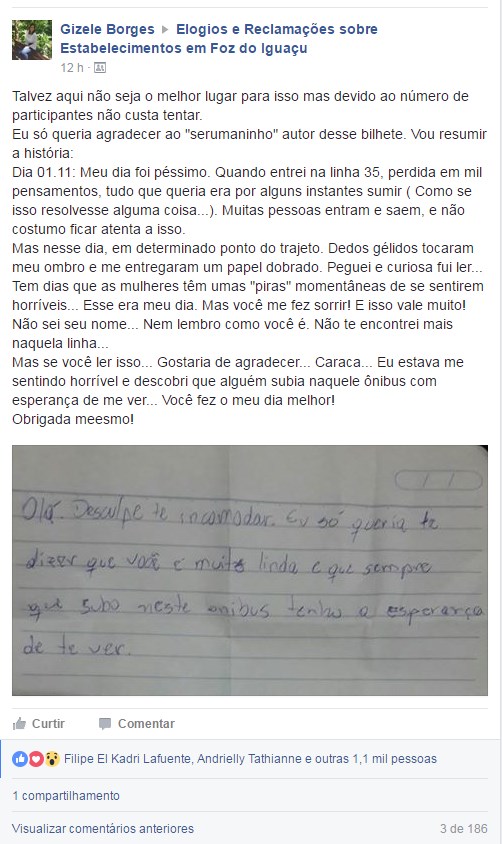 Gizele Borges ▸ Elogios e Reclamações sobre
Estabelecimentos em Foz do Iguaçu
12 h ·
Talvez aqui não seja o melhor lugar para isso mas devido ao número de
participantes não custa tentar.
Eu só queria agradecer ao "serumaninho" autor desse bilhete. Vou resumir
a história:
Dia 01.11: Meu dia foi péssimo. Quando entrei na linha 35, perdida em mil
pensamentos, tudo que queria era por alguns instantes sumir ( Como se
isso resolvesse alguma coisa...). Muitas pessoas entram e saem, e não
costumo ficar atenta a isso.
Mas nesse dia, em determinado ponto do trajeto. Dedos gélidos tocaram
meu ombro e me entregaram um papel dobrado. Peguei e curiosa fui ler...
Tem dias que as mulheres têm umas "piras" momentâneas de se sentirem
horríveis... Esse era meu dia. Mas você me fez sorrir! E isso vale muito!
Não sei seu nome... Nem lembro como você é. Não te encontrei mais
naquela linha...
Mas se você ler isso... Gostaria de agradecer... Caraca... Eu estava me
sentindo horrível e descobri que alguém subia naquele ônibus com
esperança de me ver... Você fez o meu dia melhor!
Obrigada meesmo!
Olá. Desculpe te incomodar. Eu só queria te
dizer que você é muito linda e que sempre
que subo neste onibus tenho a esperança
de te ver.
Curtir Comentar
Filipe El Kadri Lafuente, Andrielly Tathianne e outras 1,1 mil pessoas
1 compartilhamento
Visualizar comentários anteriores 3 de 186